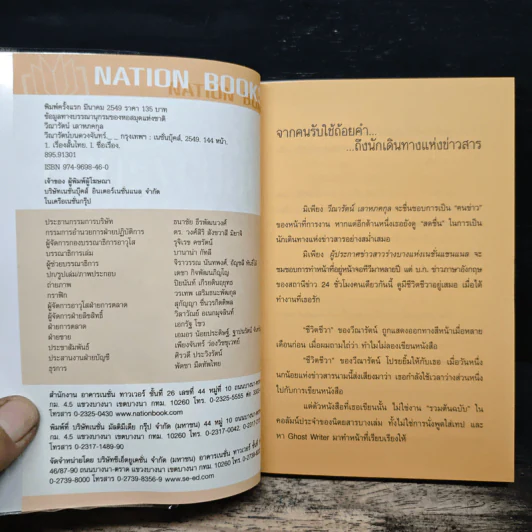 NATION BOOKS
พิมพ์ครั้งแรก มีนาคม 2549 ราคา 135 บาท
ข้อมูลทางบรรณานุกรมของหอสมุดแห่งชาติ
วีณารัตน์ เลาหภคกุล
วีณารัตน์บนดวงจันทร์._ _ กรุงเทพฯ : เนชั่นบุ๊คส์, 2549. 144 หน้า.
1. เรื่องสั้นไทย. I. ชื่อเรื่อง.
895.91301
ISBN 974-9698-46-0
เจ้าของ ผู้พิมพ์ผู้โฆษณา
บริษัทเนชั่นบุ๊คส์ อินเตอร์เนชั่นแนล จำกัด
ในเครือเนชั่นกรุ๊ป
ประธานกรรมการบริษัท ธนาชัย ธีรพัฒนวงศ์
กรรมการอำนวยการฝ่ายปฏิบัติการ ดร. วงศ์สิริ สังขวาสี มิยาจิ
ผู้จัดการกองบรรณาธิการอาวุโส รุจิเรข คชรัตน์
บรรณาธิการเล่ม บานาน่า ภัทลี
ผู้ช่วยบรรณาธิการ
ปก/รูปเล่ม/ภาพประกอบ เตชา กิจพัฒนภิญโญ
ถ่ายภาพ ปิยนันท์ เกียรติมนูยุทธ
กราฟิก วรเทพ เสริมธนะพัฒกุล
ผู้จัดการอาวุโสฝ่ายการตลาด สุกัญญา ชื่นวรกิตติพล
ผู้จัดการฝ่ายลิขสิทธิ์ วิลาวัณย์ อเนกมุจลินท์
ฝ่ายการตลาด เอกรัฐ ใชวา
ฝ่ายขาย
ประชาสัมพันธ์ เพียงจันทร์ ว่องวิชชุเวทย์
ประสานงานฝ่ายบัญชี ศิรวดี ประวิงรัตน์
ธุรการ พัตชา มีดทัพไทย
สำนักงาน อาคารเนชั่น ทาวเวอร์ ชั้นที่ 26 เลขที่ 44 หมู่ที่ 10 ถนนบางนา-ตราด
กม. 4.5 แขวงบางนา เขตบางนา กทม. 10260 โทร. 0-2325-5555 ต่อ
โทรสาร 0-2325-0430 www.nationbook.com
พิมพ์ที่ บริษัทเนชั่น มัลติมีเดีย กรุ๊ป จำกัด (มหาชน) 44 หมู่ 10 ถนนบางนา-
กม. 4.5 แขวงบางนา เขตบางนา กทม. 10260 โทร. 0-2317-0042, 0-2317-
โทรสาร 0-2317-1489-90
จัดจำหน่ายโดย บริษัทซีเอ็ดยูเคชั่น จำกัด (มหาชน) อาคารเนชั่น ทาวเวอร์ ชั้นที่
46/87-90 ถนนบางนา-ตราด แขวงบางนา เขตบางนา กทม. 10260 โทร.
0-2739-8000 โทรสาร 0-2739-8356-9 www.se-ed.com
จากคนรับใช้ถ้อยคำ...
...ถึงนักเดินทางแห่งข่าวสาร
มิเพียง วีณารัตน์ เลาหภคกุล จะชื่นชอบการเป็น "คนข่าว"
ของหน้าที่การงาน หากแต่อีกด้านหนึ่งเธอยังดู "สดชื่น" ในการเป็น
นักเดินทางแห่งข่าวสารอย่างสม่ำเสมอ
มิเพียง ผู้ประกาศข่าวสาวร่างบางแห่งเนชั่นแชนแนล จะ
ชมชอบการทำหน้าที่อยู่หน้าจอทีวีมาหลายปี แต่ บ.ก. ข่าวภาษาอังกฤษ
ของสถานีข่าว 24 ชั่วโมงคนเดียวกันนี้ ดูมีชีวิตชีวาอยู่เสมอ เมื่อได้
ทำงานที่เธอรัก
"ชีวิตชีวา" ของวีณารัตน์ ถูกแสดงออกทางสีหน้าเมื่อหลาย
เดือนก่อน เมื่อผมถามไถ่ว่า ทำไมไม่ลองเขียนหนังสือ
"ชีวิตชีวา" ของวีณารัตน์ โปรยยิ้มให้กับเธอ เมื่อวันหนึ่ง
นกน้อยแห่งข่าวสารนามนี้ส่งเสียงมาว่า เธอกำลังใช้เวลาว่างส่วนหนึ่ง
ไปกับการเขียนหนังสือ
แต่ตัวหนังสือที่เธอเขียนนั้น ไม่ใช่งาน "รวมต้นฉบับ" ใน
คอลัมน์ประจำของนิตยสารบางเล่ม ทั้งไม่ใช่การนั่งพูดใส่เทป และ
หา Ghost Writer มาทำหน้าที่เรียบเรียงให้